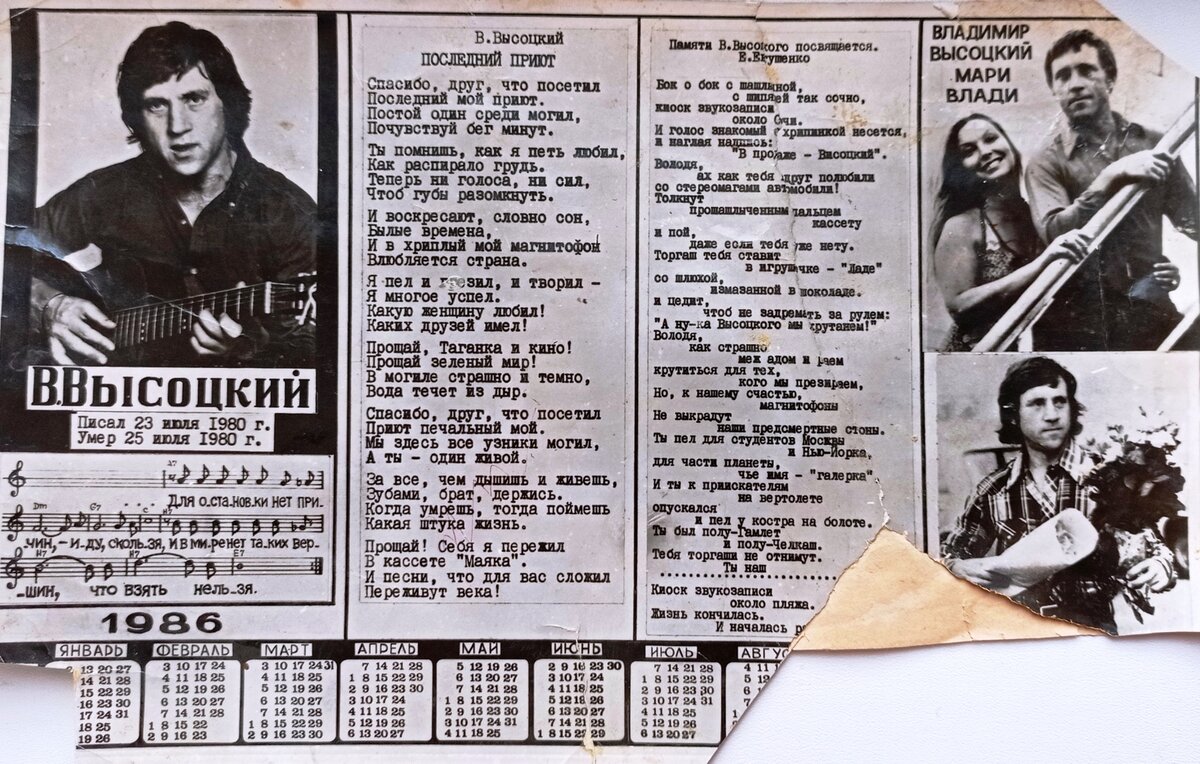 В.ВЫСОЦКИЙ
Писал 23 июля 1980 г.
Умер 25 июля 1980 г.
A7
Для о.ста.нов.ки нет при.
Dm G7 C H7
чин,-и-ду, сколь.зя, и в ми.ре нет та.ких вер-
H7 H7 E7
-шин, что взять нель-зя.
1986
В.Высоцкий
ПОСЛЕДНИЙ ПРИЮТ
Спасибо, друг, что посетил
Последний мой приют.
Постой один среди могил,
Почувствуй бег минут.
Ты помнишь, как я петь любил,
Как распирало грудь.
Теперь ни голоса, ни сил,
Чтоб губы разомкнуть.
И воскресают, словно сон,
Былые времена,
И в хриплый мой магнитофон
Влюбляется страна.
Я пел и грезил, и творил -
Я многое успел.
Какую женщину любил!
Каких друзей имел!
Прощай, Таганка и кино!
Прощай зеленый мир!
В могиле страшно и темно,
Вода течет из дыр.
Спасибо, друг, что посетил
Приют печальный мой.
Мы здесь все узники могил,
А ты - один живой.
За все, чем дышишь и живешь,
Зубами, брат, держись.
Когда умрешь, тогда поймешь
Какая штука жизнь.
Прощай! Себя я пережил
В кассете "Маяка".
И песни, что для вас сложил
Переживут века!
Памяти В.Высокого посвящается.
Е.Евтушенко
Бок о бок с шашлычной,
с шипящей так сочно,
киоск звукозаписи
около Сочи.
И голос знакомый с хрипинкой несется,
и наглая надпись:
"В продаже - Високций".
Володя,
ах как тебя вдруг полюбили
со стереомагами автомобили!
Толкнут
прошашлыченным пальцем
кассету
и пой,
даже если тебя уже нету.
Торгаш тебя ставит
в игрушечке - "Ладе"
со шлюхой,
измазанной в шоколаде.
и цедит,
чтоб не задремать за рулем:
"А ну-ка Высоцкого мы крутанем!"
Володя,
как страшно
меж адом и раем
крутиться для тех,
кого мы презираем,
Но, к нашему счастью,
магнитофоны
Не выкрадут
наши предсмертные стоны.
Ты пел для студентов Москвы
и Нью-Йорка,
для части планеты,
чье имя - "галерка"
И ты к приискателям
на вертолете
опускался
и пел у костра на болоте.
Ты был полу-Гамлет
и полу-Челкаш.
Тебя торгаши не отнимут.
Ты наш
Киоск звукозаписи
около пляжа.
Жизнь кончилась.
И началась
ВЛАДИМИР
ВЫСОЦКИЙ
МАРИ
ВЛАДИ
ЯНВАРЬ
13 20 27
14 21 28
15 22 29
16 23 30
17 24 31
18 25
19 26
ФЕВРАЛЬ
3 10 17 24
4 11 18 25
5 12 19 26
6 13 20 27
7 14 21 28
1 8 15 22
2 9 16 23
МАРТ
3 10 17 24 31
4 11 18 25
5 12 19 26
6 13 20 27
7 14 21 28
1 8 15 22 29
2 9 16 23 30
АПРЕЛЬ
7 14 21 28
1 8 15 22 29
2 9 16 23 30
3 10 17 24
4 11 18 25
5 12 19 26
6 13 20 27
МАЙ
5 12 19 26
6 13 20 27
7 14 21 28
1 8 15 22 29
2 9 16 23 30
3 10 17 24 31
4 11 18 25
ИЮНЬ
2 9 16 23 30
3 10 17 24
4 11 18 25
5 12 19 26
6 13 20 27
7 14 21 28
1 8 15 22 29
ИЮЛЬ
7 14 21 28
1 8 15 22 29
2 9 16 23 30
3 10 17 24 31
4 11 18 25
5 12 19 26
6 13 20 27
АВГУС
4 11
5 12
6
7
1
2